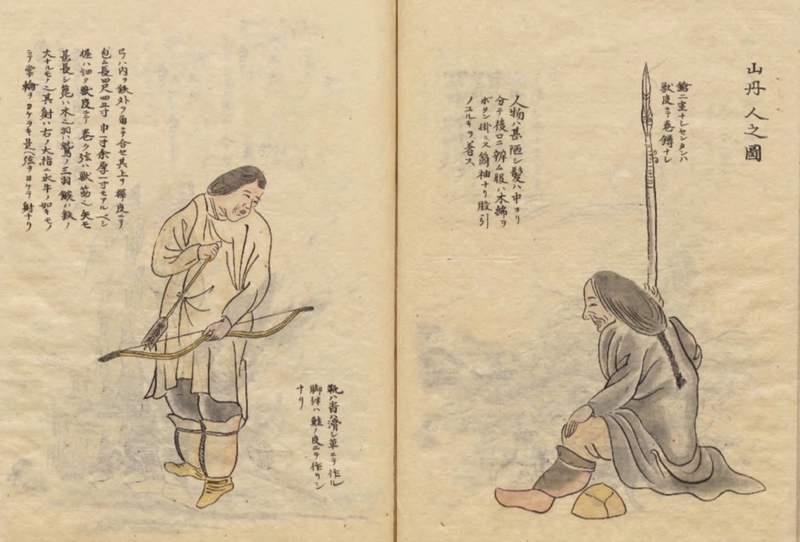 山丹人之圖
鎗ニ室ナレセンタンハ
獣皮ニテ巻鐏ナシ
人物ハ甚陋シ髪ハ中ヨリ
分テ後ロニ辮ム服ハ木綿ヲ
ボタン掛ニス筒袖ナリ股引
ノユルキヲ着ス
弓ハ内ヲ鉄外ヲ角ニテ合セ其上ヲ樺皮ニテ
包ム長四尺四五寸巾一寸余厚一寸モアルベシ
ハ獣皮ニテ巻ク弦ハ獣筋也矢モ
甚長シ箆ハ木也羽ハ鷲ノ三羽鏃ハ鉄ノ
大ナルモノ也其射ハ右ノ大指ニ水牛ノ如キモノ
ニテ輪ヲカケヲキ是ヘ弦ヲカケテ射ナリ
沓ハ滑シ革ニテ作ル
脚絆ハ鮭ノ皮ニテ作リシ
ナリ